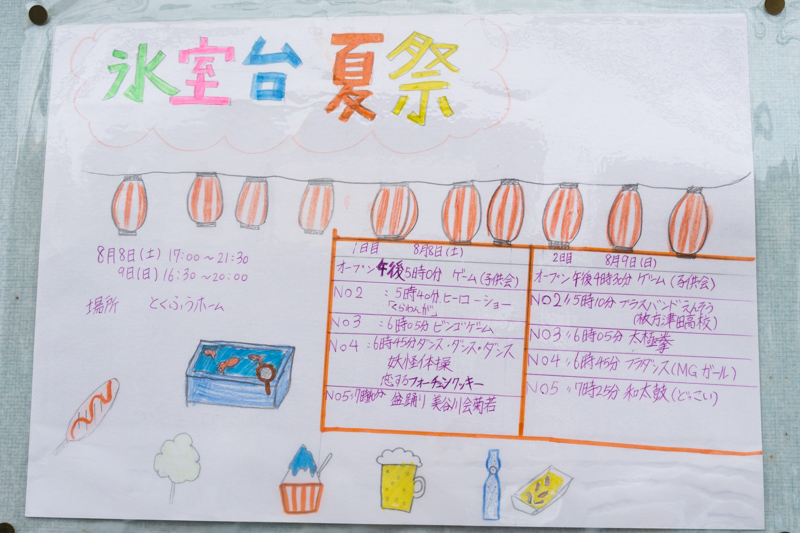 氷室台夏祭
8月8日(土) 17:00～21:30
9日(日) 16:30～20:00
場所 とくふうホーム
1日目 8月8日(土)
オープン午後5時0分 ゲーム(子供会)
NO2 :5時40分 ヒーローショー
「くらわんが」
NO3 :6時05分 ビンゴゲーム
NO4 :6時45分 ダンス・ダンス・ダンス
妖怪体操
恋するフォーチュンクッキー
NO5 盆踊り 美谷川会菊若
2日目 8月9日(日)
オープン午後4時30分 ゲーム(子供会)
NO2〃5時10分 ブラスバンドえんそう
(枚方津田高校)
NO3〃6時05分 太極拳
NO4〃6時45分 フラダンス(MGガール)
NO5〃7時25分 和太鼓(どっこい)